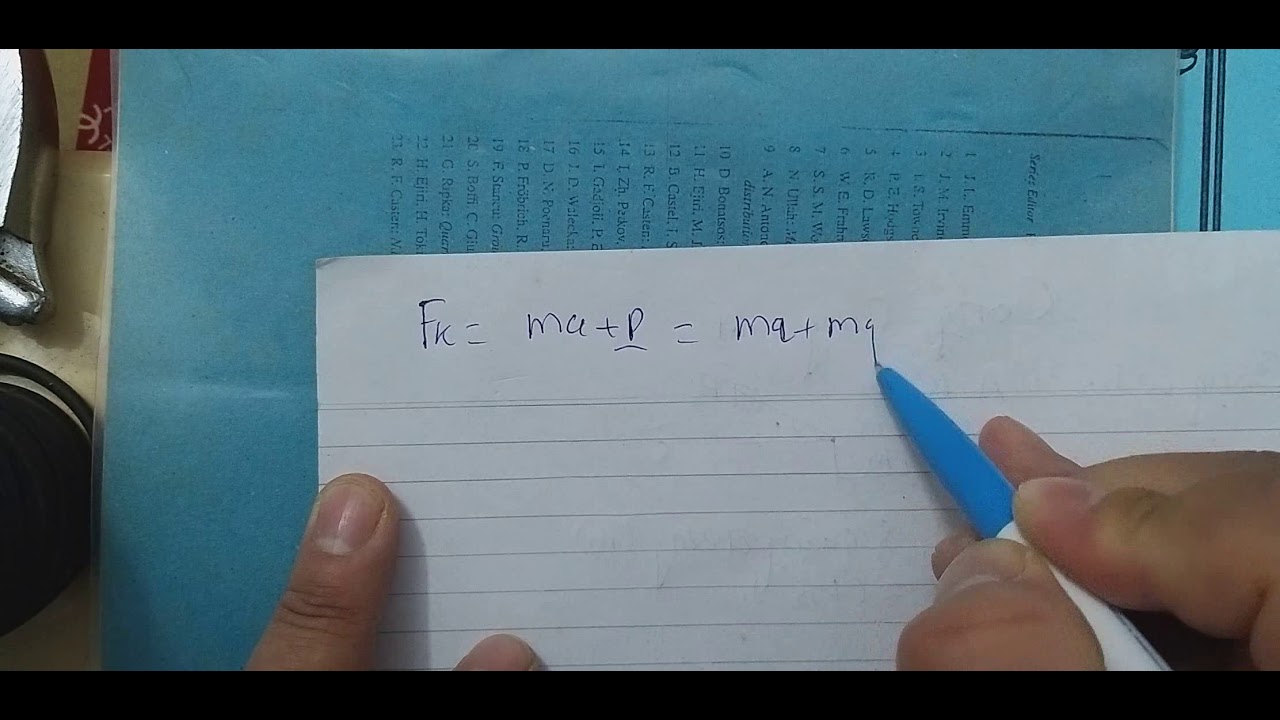 Fk = ma + P = ma + mg
Series Editor
1 J. L. Emm
2 J. M. Irvin
3 I. S. Towne
4 P. E. Hodgs
5 R. D. Laws
6 W. E. Frahn
7 S. S. M. Wo
8 N. Ullah:
9 A. N. Antono
distributio
10 D. Bonatsos:
11 H. Ejiri, M. J
12 B. Castel, I. S
13 R. F. Casten:
14 I. Zh. Petkov,
15 E. Gadioli, P. E
16 J. D. Walecka:
17 D. N. Poenaru
18 P. Fröbrich, R.
19 F. Stancu: Grou
20 S. Boffi, C. Giu
21 G. Ripka: Quar
22 H. Ejiri, H. Toki
23 R. F. Casten: